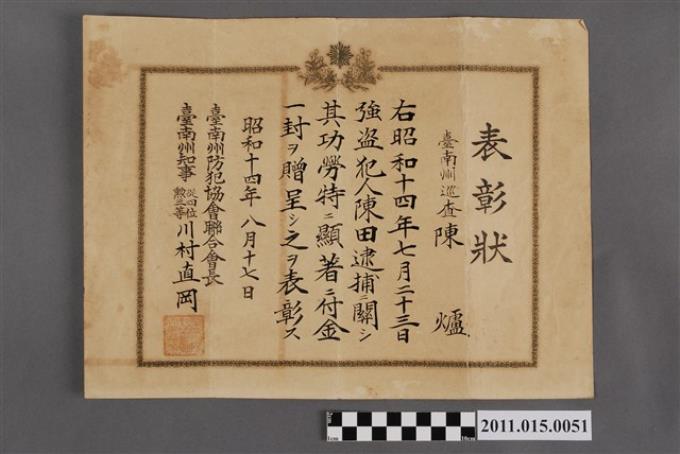 表彰狀
臺南州巡査 陳 爐
右昭和十四年七月二十三日
強盜犯人陳田逮捕ニ關シ
其功勞特ニ顯著ニ付金
一封ヲ贈呈シ之ヲ表彰ス
昭和十四年八月十七日
臺南州防犯協會聯合會長
臺南州知事 從四位勲三等 川村直岡
2011.015.0051
1cm
10cm